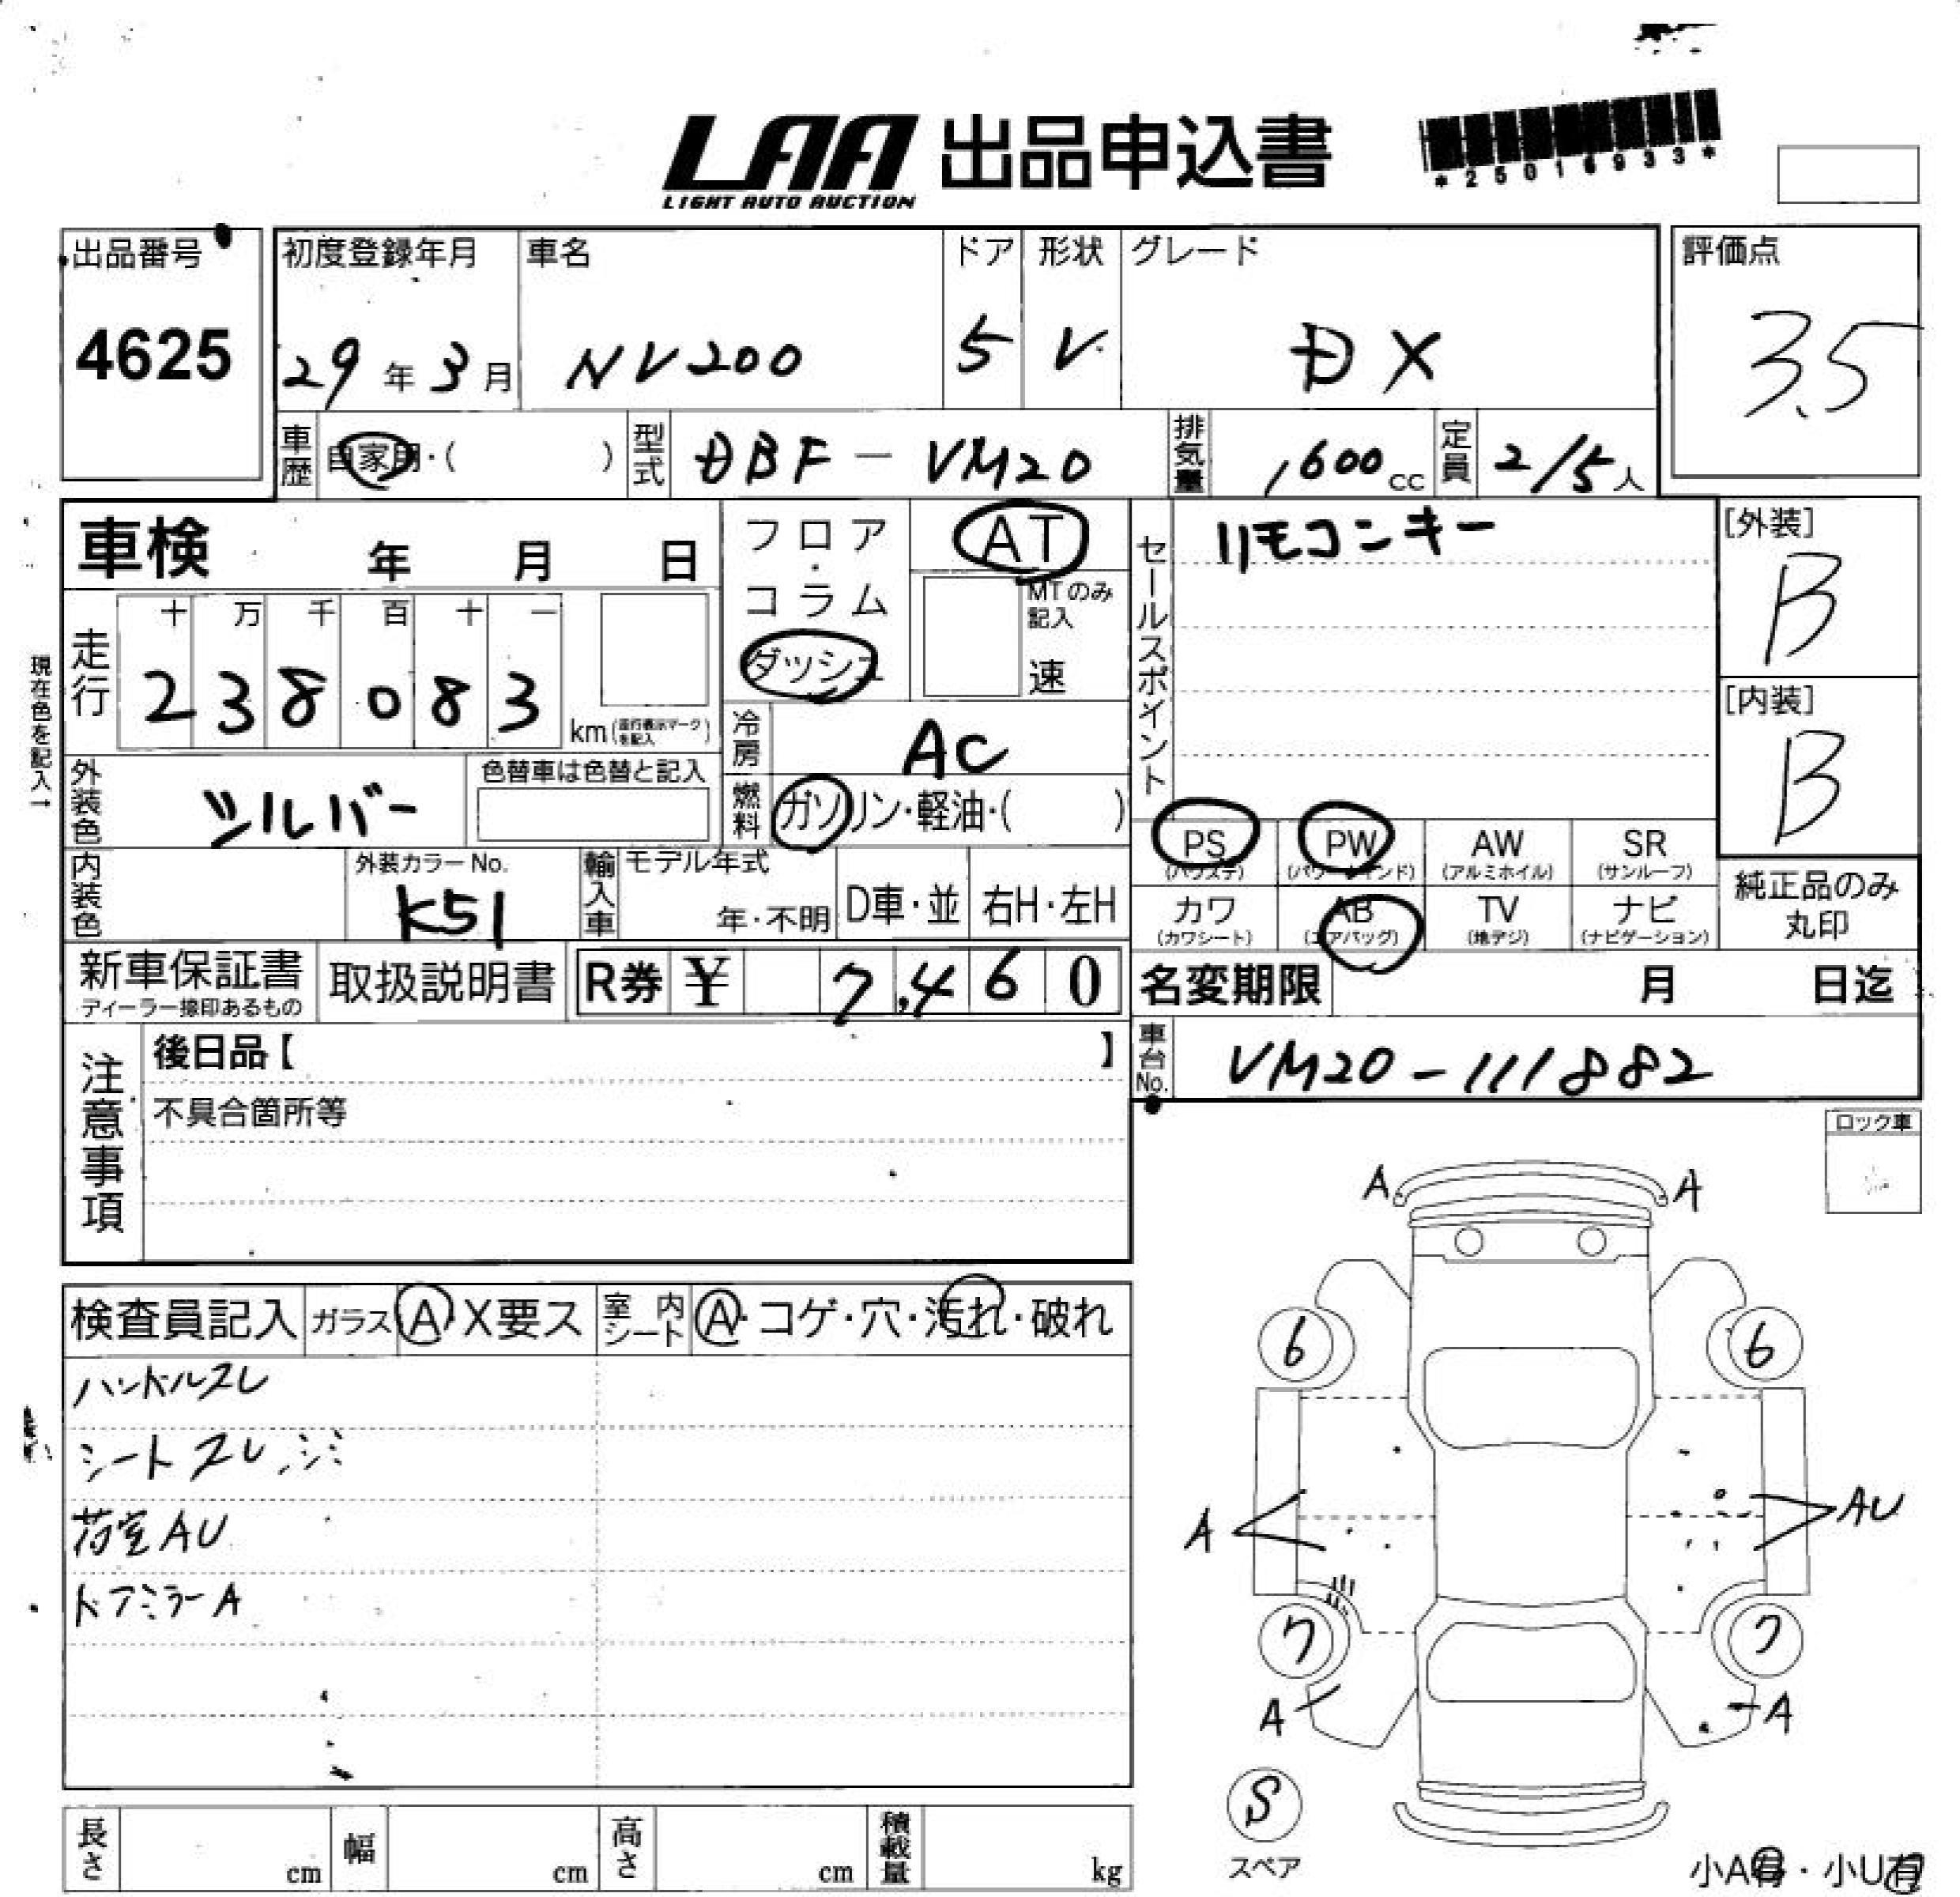 LAA 出品申込書
LIGHT AUTO AUCTION
*25016933*
出品番号
4625
初度登録年月
29年3月
車名
NV200
ドア
5
形状
V
グレード
DX
評価点
3.5
車歴 自家用・( )
型式 DBF-VM20
排気量 1,600cc
定員 2/5人
車検 年 月 日
フロア・コラム
ダッシュ
AT
MTのみ記入
速
セールスポイント
リモコンキー
[外装]
B
[内装]
B
現在色を記入→
走行
十 万 千 百 十 一
2 3 8 0 8 3
km(走行表示マークを記入)
冷房 AC
外装色 シルバー
色替車は色替と記入
燃料 ガソリン・軽油・( )
PS (パワステ)
PW (パワーウインド)
AW (アルミホイル)
SR (サンルーフ)
内装色
外装カラーNo.
K51
輸入車
モデル年式
年・不明
D車・並
右H・左H
カワ (カワシート)
AB (エアバッグ)
TV (地デジ)
ナビ (ナビゲーション)
純正品のみ丸印
新車保証書
ディーラー捺印あるもの
取扱説明書
R券 ¥ 7,460
名変期限 月 日迄
車台No. VM20-111882
注意事項
後日品【 】
不具合箇所等
ロック車
検査員記入
ガラス A X要ス
室内シート A・コゲ・穴・汚れ・破れ
ハンドルスレ
シートスレ、シミ
荷室AU
ドアミラーA
A A
6 6
A AU
7 7
A A
S
スペア
長さ cm
幅 cm
高さ cm
積載量 kg
小A有・小U有